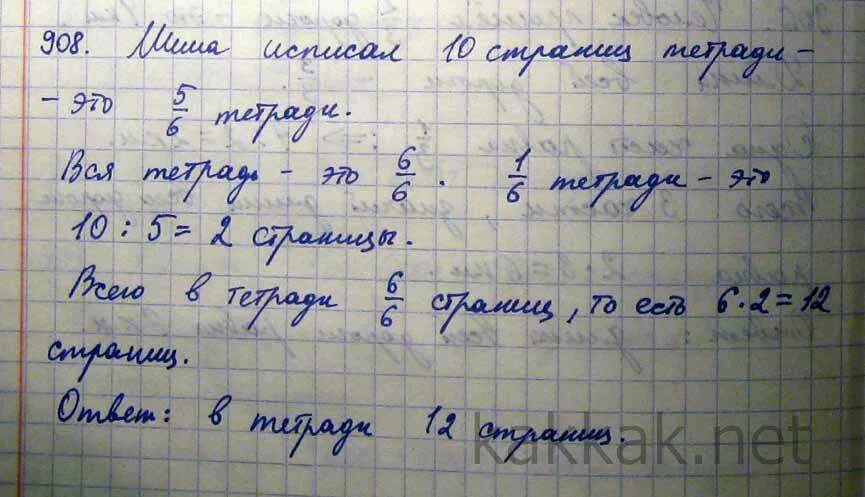 908. Миша исписал 10 страниц тетради -
- это 5/6 тетради.
Вся тетрадь - это 6/6. 1/6 тетради - это
10 : 5 = 2 страницы.
Всего в тетради 6/6 страниц, то есть 6·2=12
страниц.
Ответ: в тетради 12 страниц.
kakkak.net